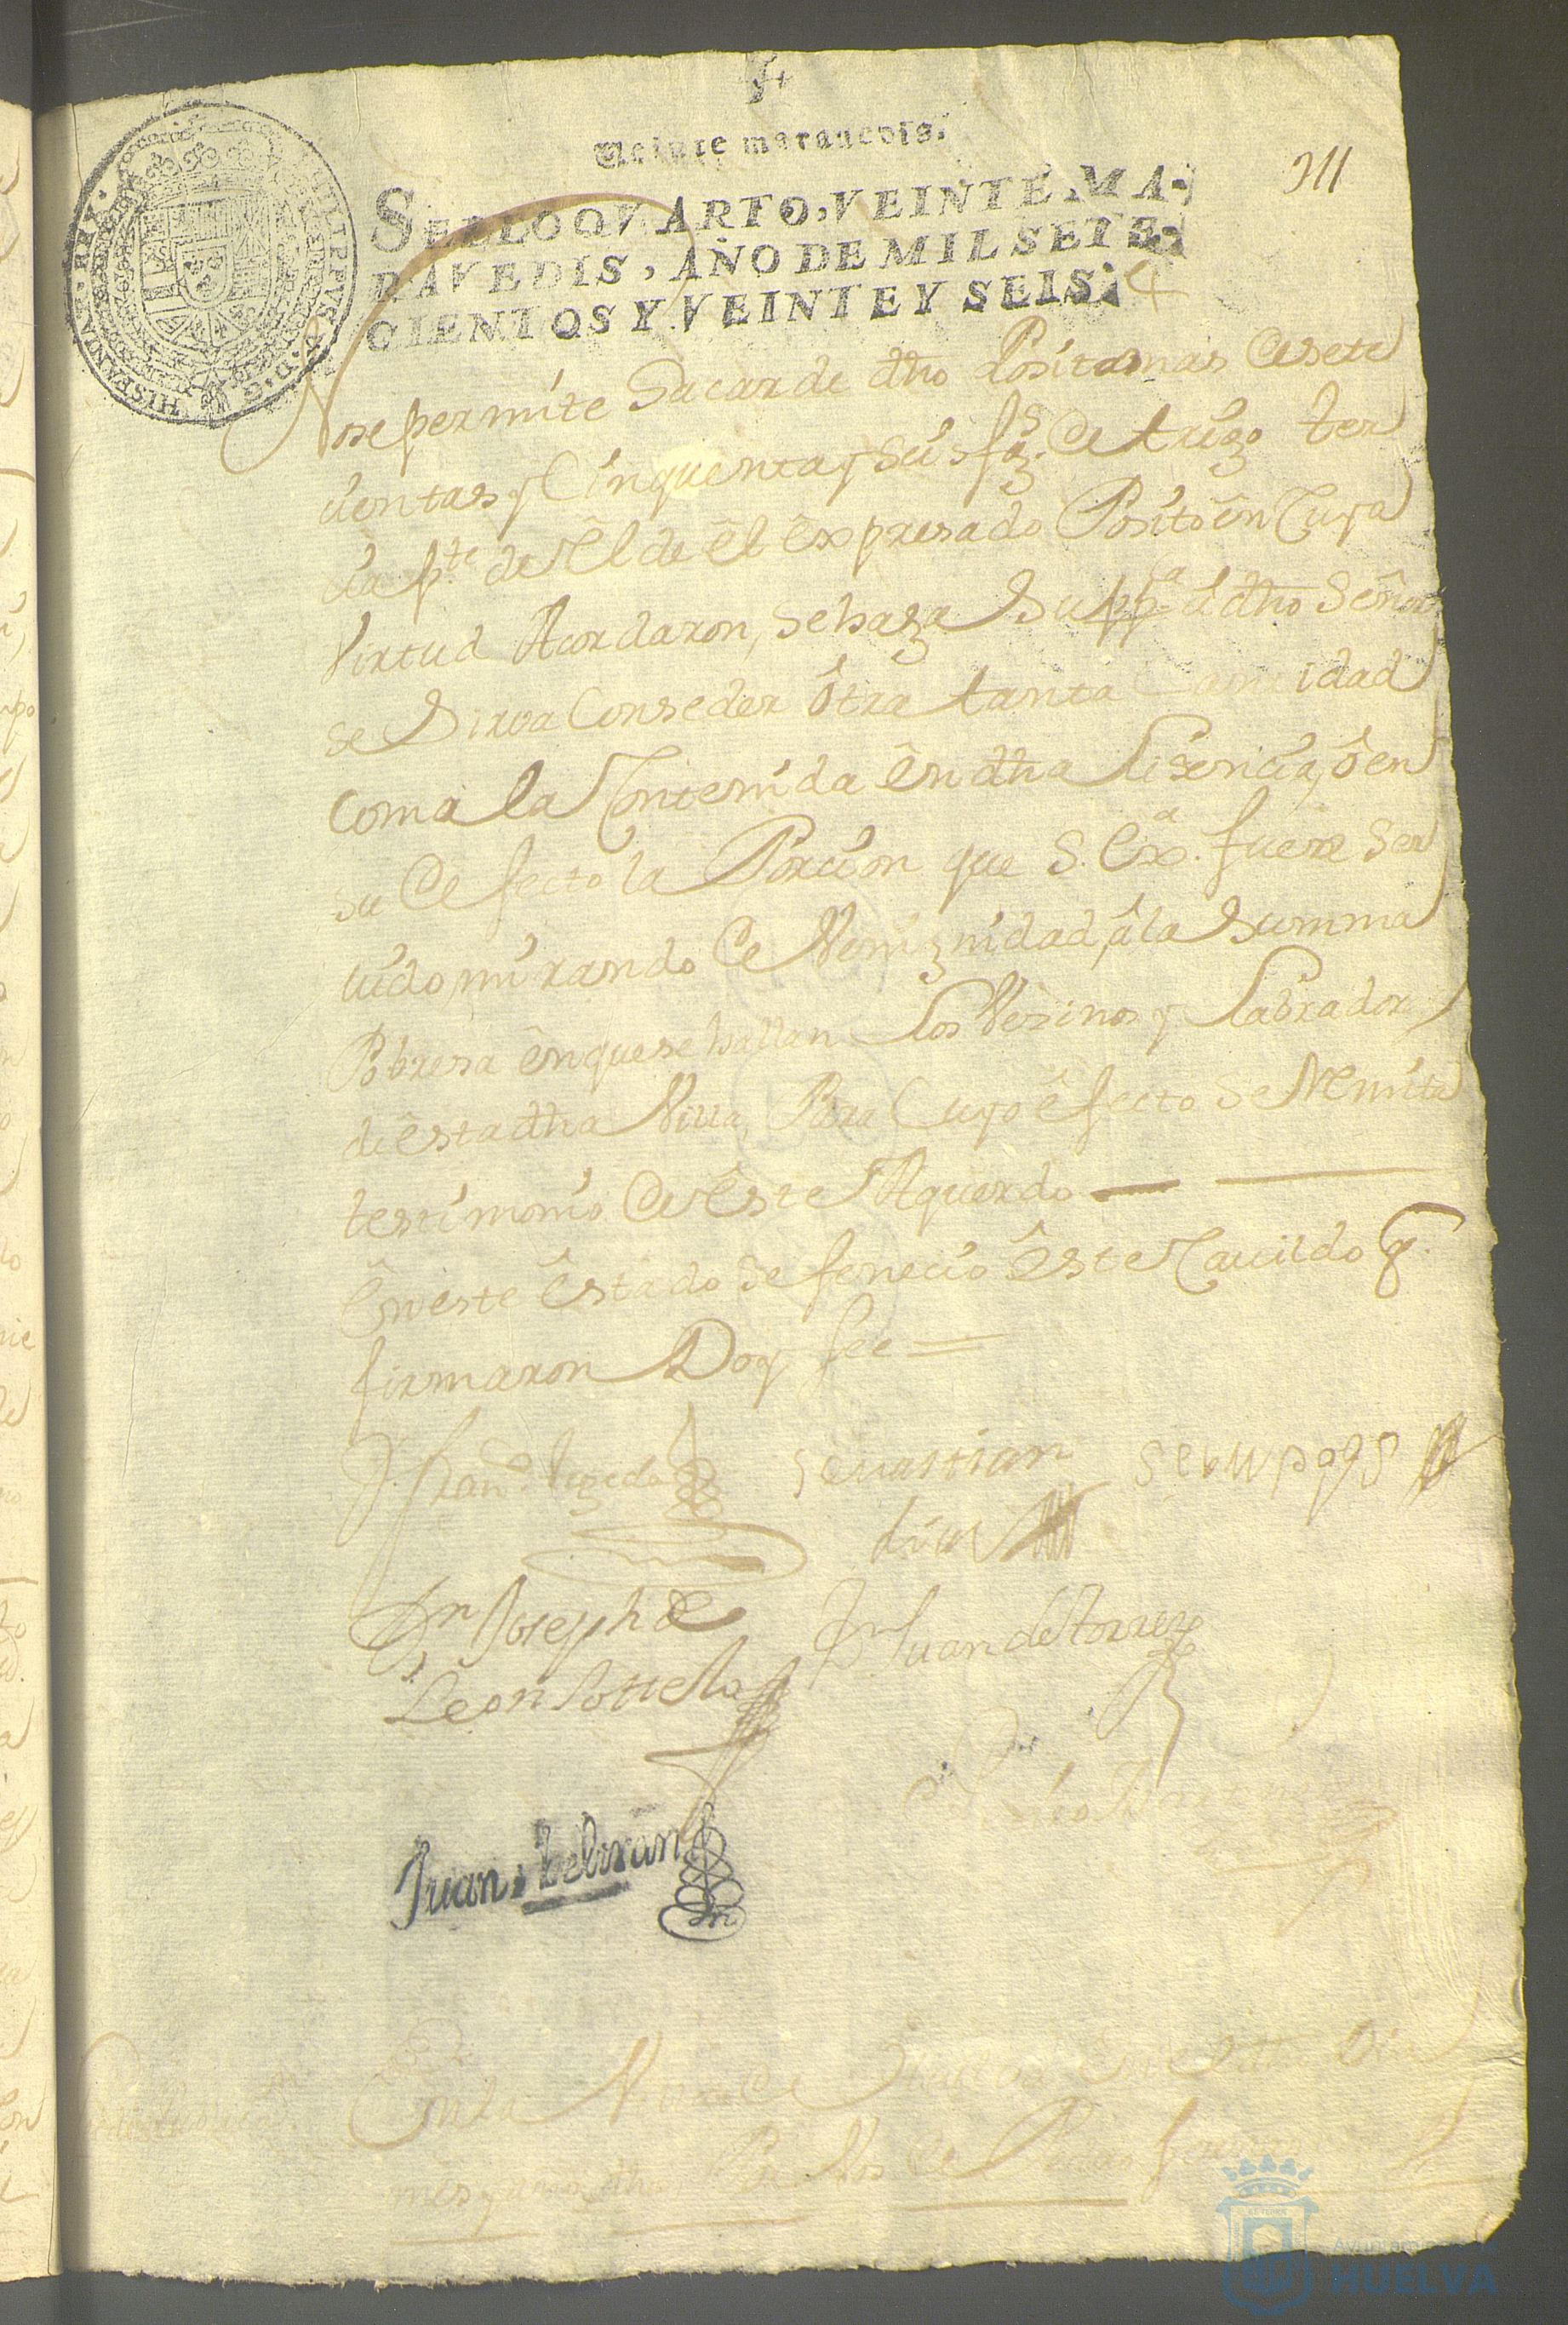 Veinte maravedis.
311
SELLO QVARTO, VEINTE MA-
RAVEDIS, AÑO DE MIL SETE-
CIENTOS Y VEINTE Y SEIS.
PHILIPPVS V. D. G. HISPANIAR. REX
No se permite Sacar de dho Posito mas de sete
cientas y Cinquenta y Seis fgs. de trigo ter
cia pte de el de el expresado Posito en Cuya
Virtud Acordaron, se haga Suppca â dho Señor
se Sirva Conseder ôtra tanta Cantidad
como la Contenida en dha Lisencia, ô en
su defecto la Porcion que S. Exa. fuere Ser
vido, mirando de Venignidad, â la Summa
Pobresa en que se hallan los Vezinos y Labradores
de esta dha Villa, Para Cuyo êfecto Se Remita
testimonio de este Aquerdo
En este êstado se fenecio êste Cavildo q.
firmaron Doy fee =
Sevastian
dias
Dn Joseph de
Leon
Dn Juan de torres
Juan, beltran
En la Villa de Huelva En el dho Dia
mes y año dho, Por Vos de Pedro
Ayuntamiento de
HUELVA